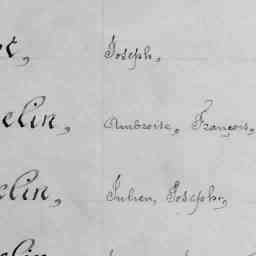 Joseph,
elin, Ambroise, François,
elin, Julien, Joseph,
elin,